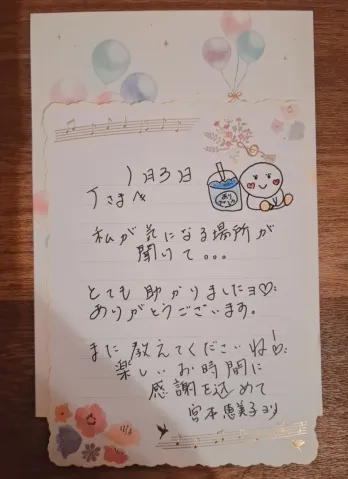 1日3日
Tさまへ
私が気になる場所が
聞けて...
とても助かりましたヨ♡
ありがとうございます。
また教えてくださいね!♡
楽しいお時間に
感謝を込めて
宮本恵美子より